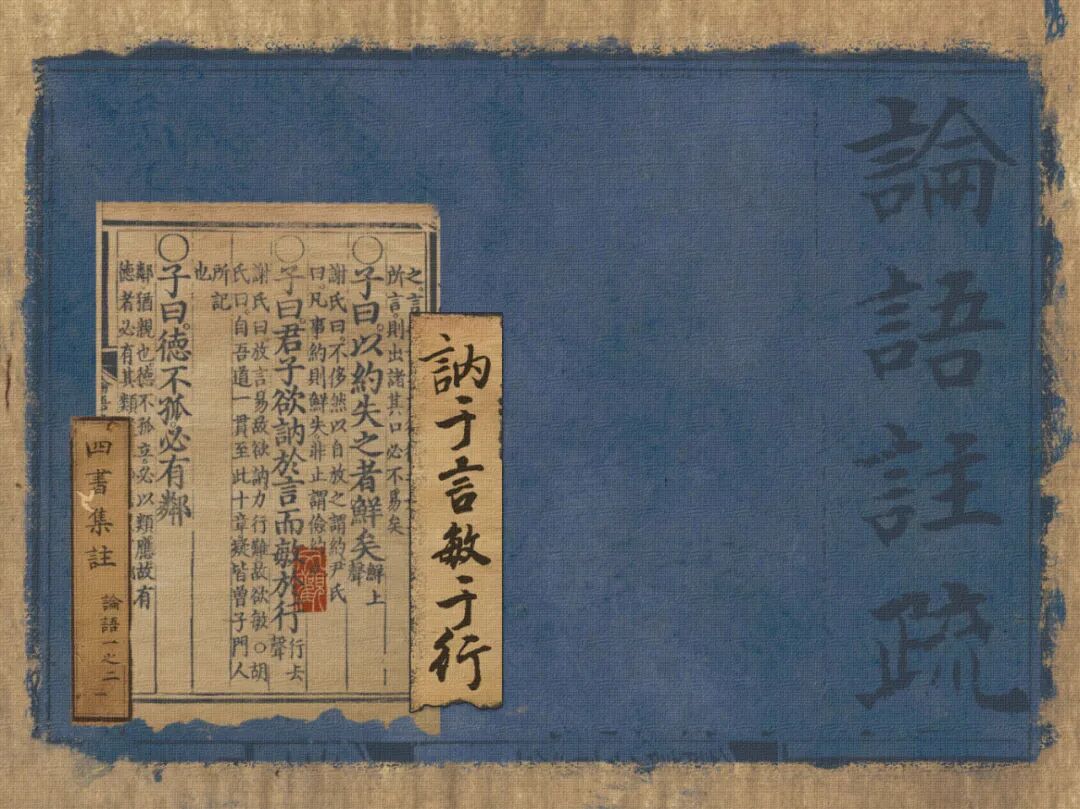 論語註疏
訥于言敏于行
之。言
所言。則出諸其口必不易矣
○子曰。以約失之者鮮矣 鮮上聲
謝氏曰。不侈然以自放之謂約。尹氏
曰。凡事約則鮮失。非止謂儉約
○子曰。君子欲訥於言而敏於行 行去聲
謝氏曰放言易故欲訥力行難故欲敏○胡
氏曰。自吾道一貫至此十章疑皆曾子門人
所記
也
○子曰。徳不孤。必有鄰
鄰。猶親也。徳不孤立。必以類應。故有
徳者必有其類
四書集註
論語一之二